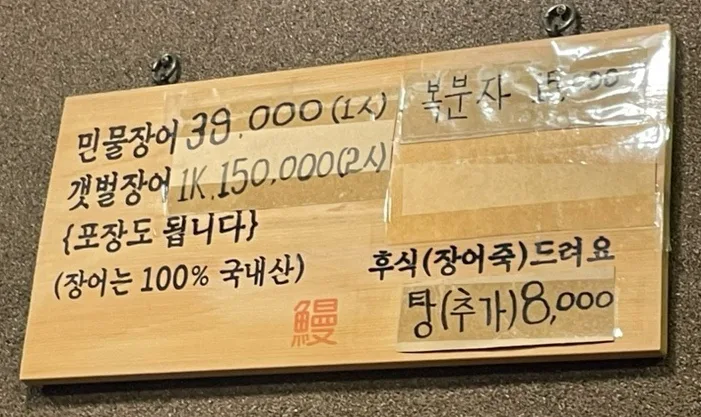 민물장어 39,000(1人)
갯벌장어 1K.150,000(2人)
{포장도 됩니다}
(장어는 100% 국내산)
복분자
후식(장어죽)드려요
탕(추가)8,000
鰻